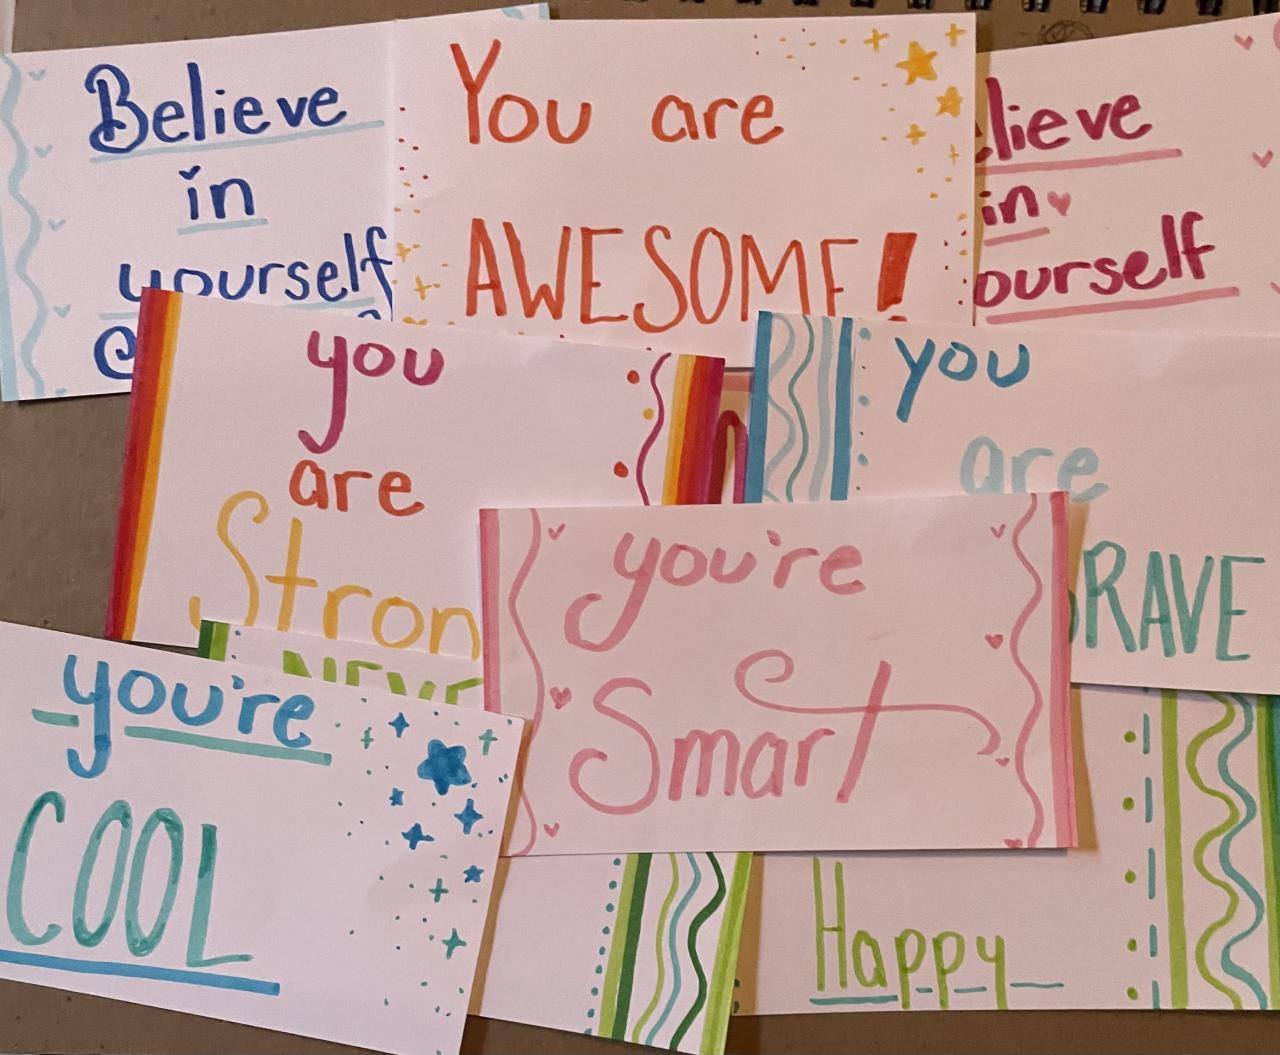 Believe
in
yourself
You are
AWESOME!
lieve
in
ourself
you
are
Stron
you
are
RAVE
you're
Smart
NEVER
you're
COOL
Happy